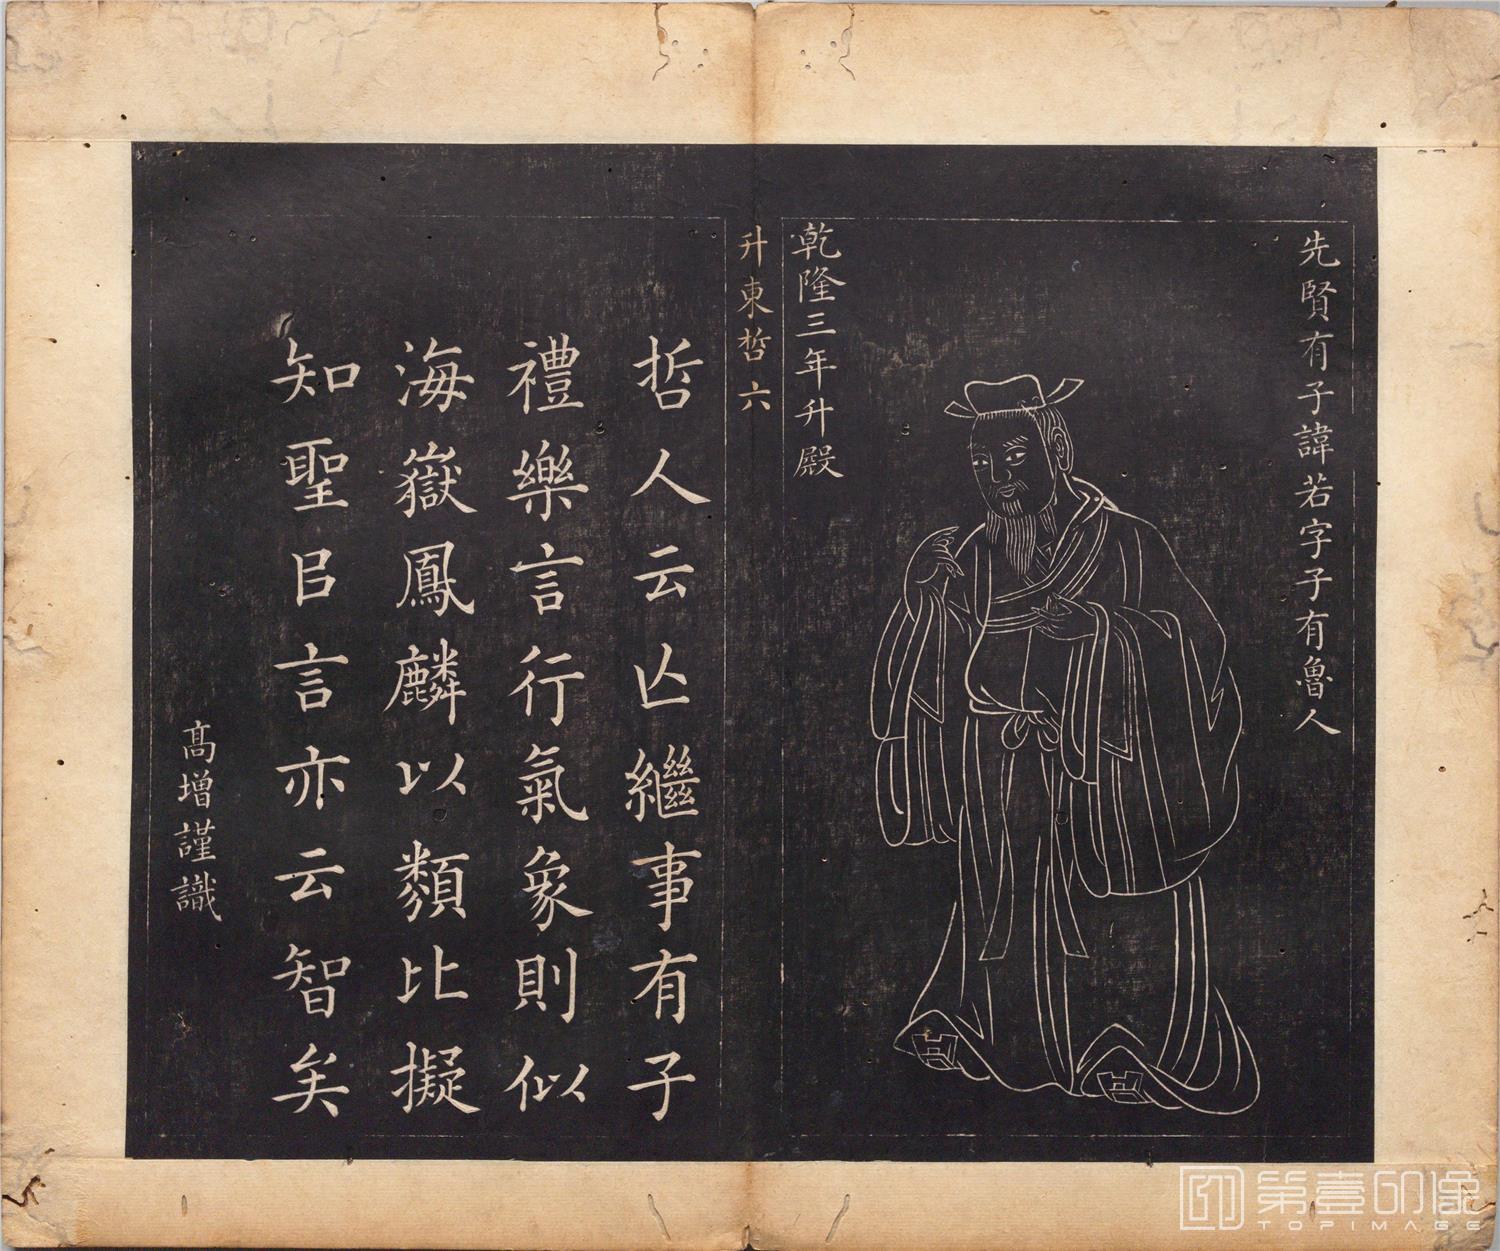 先賢有子諱若字子有魯人
乾隆三年升殿
升東哲六
哲人云亾繼事有子
禮樂言行氣象則似
海嶽鳳麟以類比擬
知聖㠯言亦云智矣
高增謹識
第壹印像
TOPIMAGE